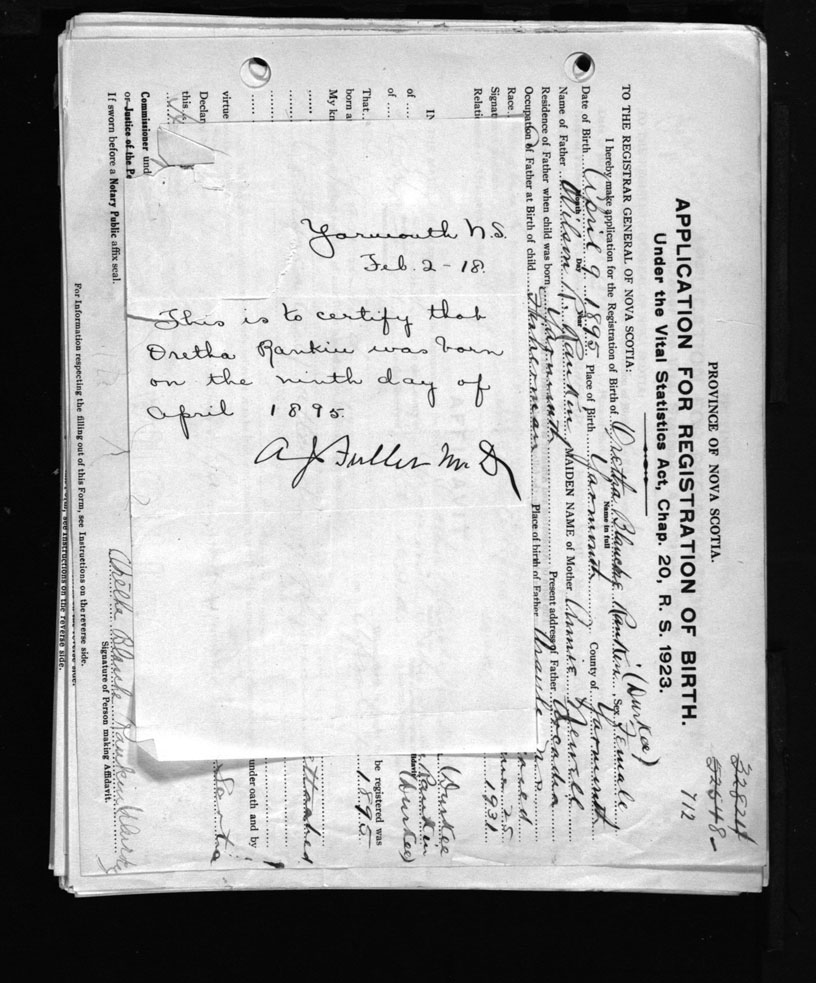 PROVINCE OF NOVA SCOTIA.
APPLICATION FOR REGISTRATION OF BIRTH.
Under the Vital Statistics Act, Chap. 20, R. S. 1923.
712
TO THE REGISTRAR GENERAL OF NOVA SCOTIA:
(Durkee)
I hereby make application for the Registration of Birth of Oretha Blanche Rankin, Sex Female
Name in full
Date of Birth April 9 1895 Place of Birth Yarmouth County of Yarmouth
Month Day Year
Name of Father Wilson R. Rankin MAIDEN NAME of Mother Annie Newell
Residence of Father when child was born Yarmouth Present address of Father Arcadia
Occupation of Father at Birth of child Fisherman Place of birth of Father
Race
Signat 25 1931
Relati
(Durkee
IN Rankin
of (Durkee)
of
That be registered was
born a 1895
My kn
attached
virtue under oath and by
Declar
this
Commissioner und
or Justice of the Pe
If sworn before a Notary Public affix seal.
Signature of Person making Affidavit.
For Information respecting the filling out of this Form, see Instructions on the reverse side.
Yarmouth N.S.
Feb. 2-18.
This is to certify that
Oretha Rankin was born
on the ninth day of
April 1895.
A J Fuller M.D